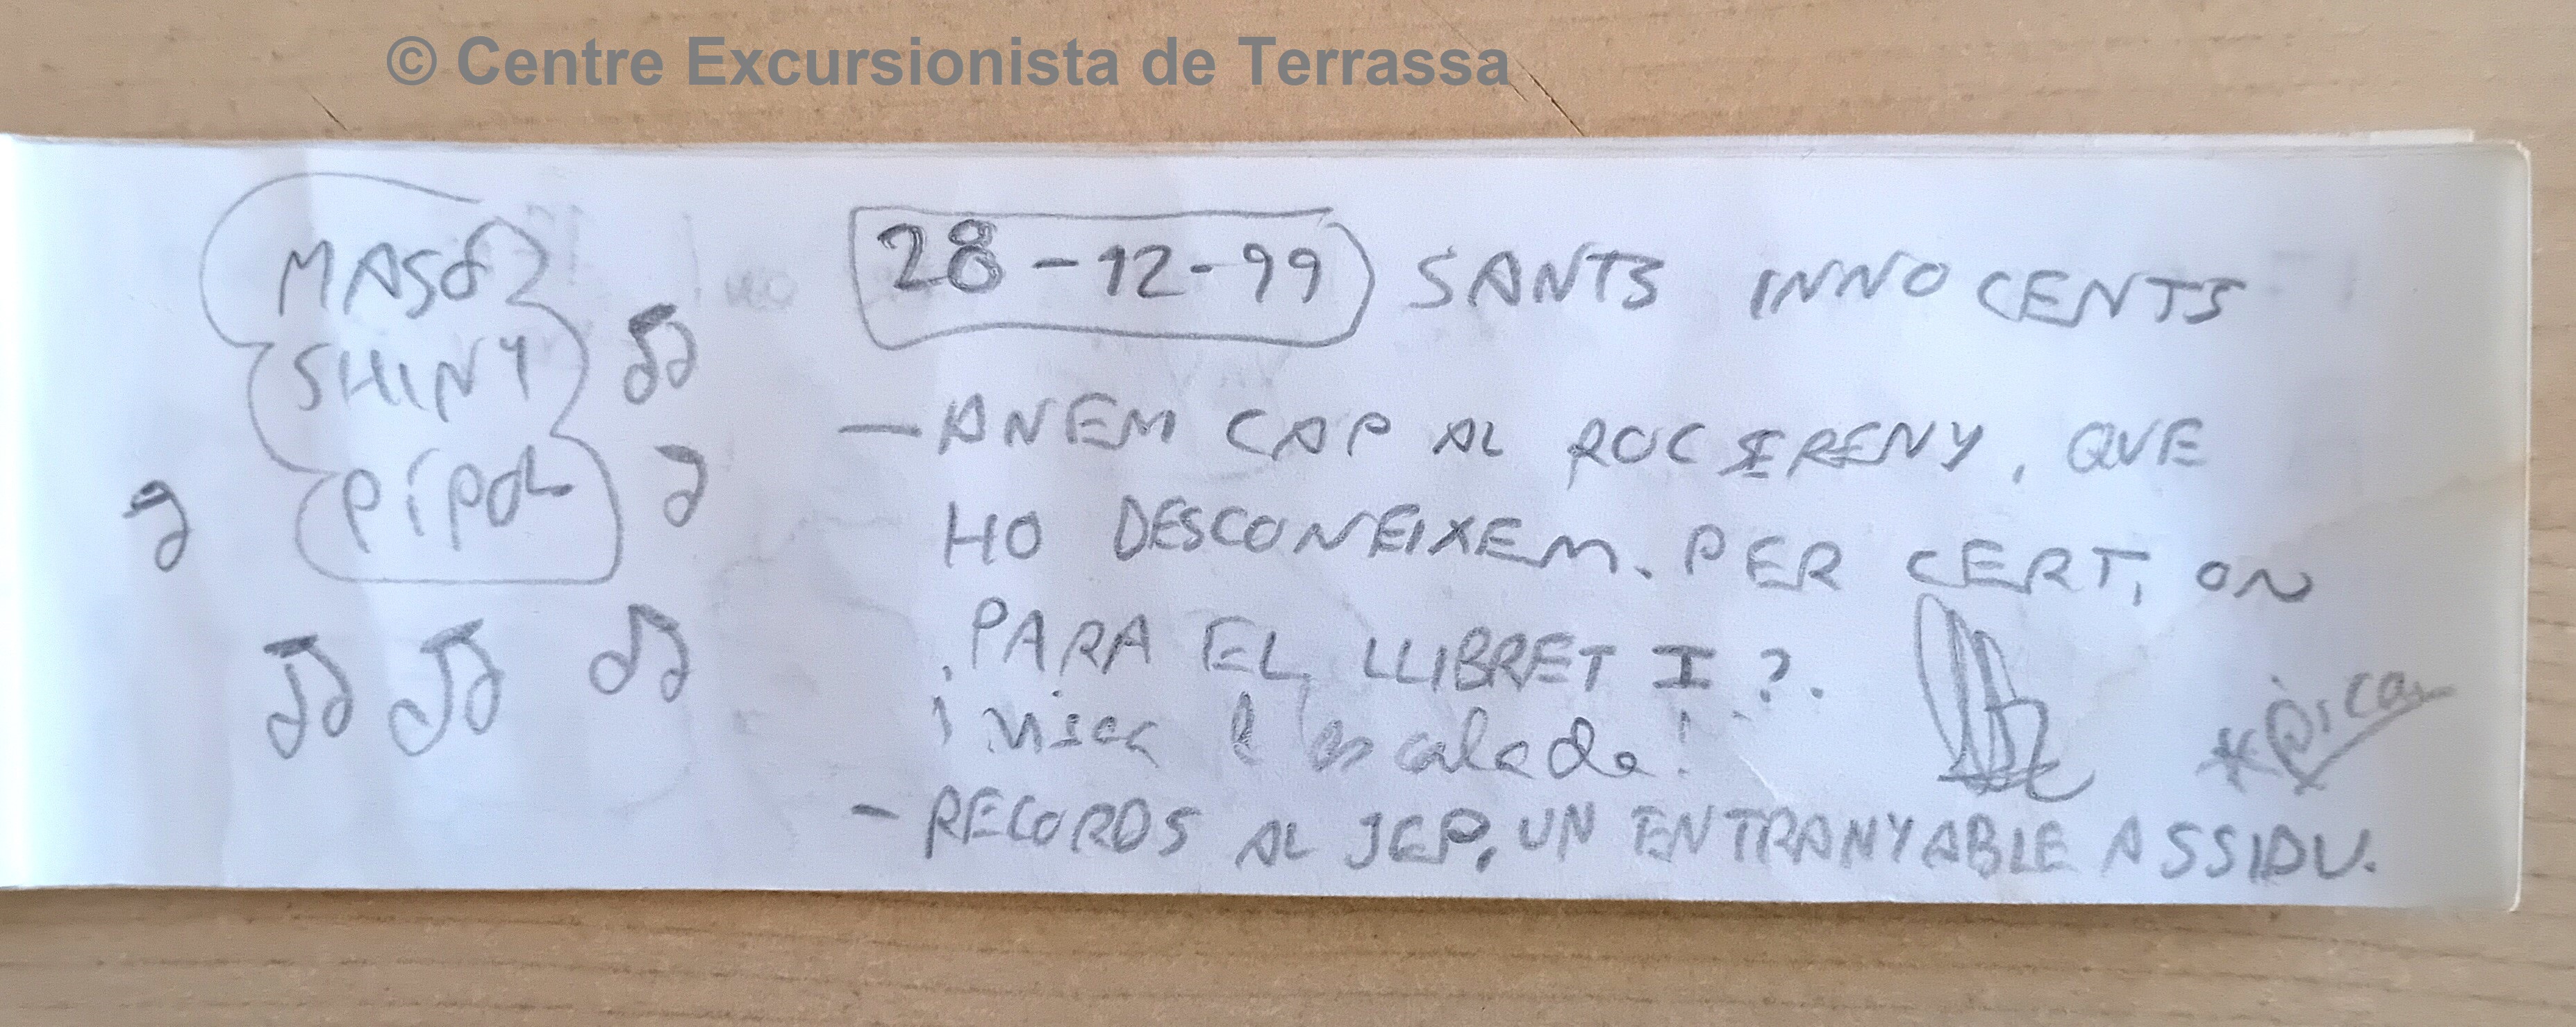 © Centre Excursionista de Terrassa
SHINY
PÍPOL
28-12-99 SANTS INNOCENTS
- ANEM CAP AL ROC SERENY, QUE
HO DESCONEIXEM. PER CERT, ON
PARA EL LLIBRET I?.
¡Visca l'escalada!
- RECORDS AL JEP, UN ENTRANYABLE ASSIDU.